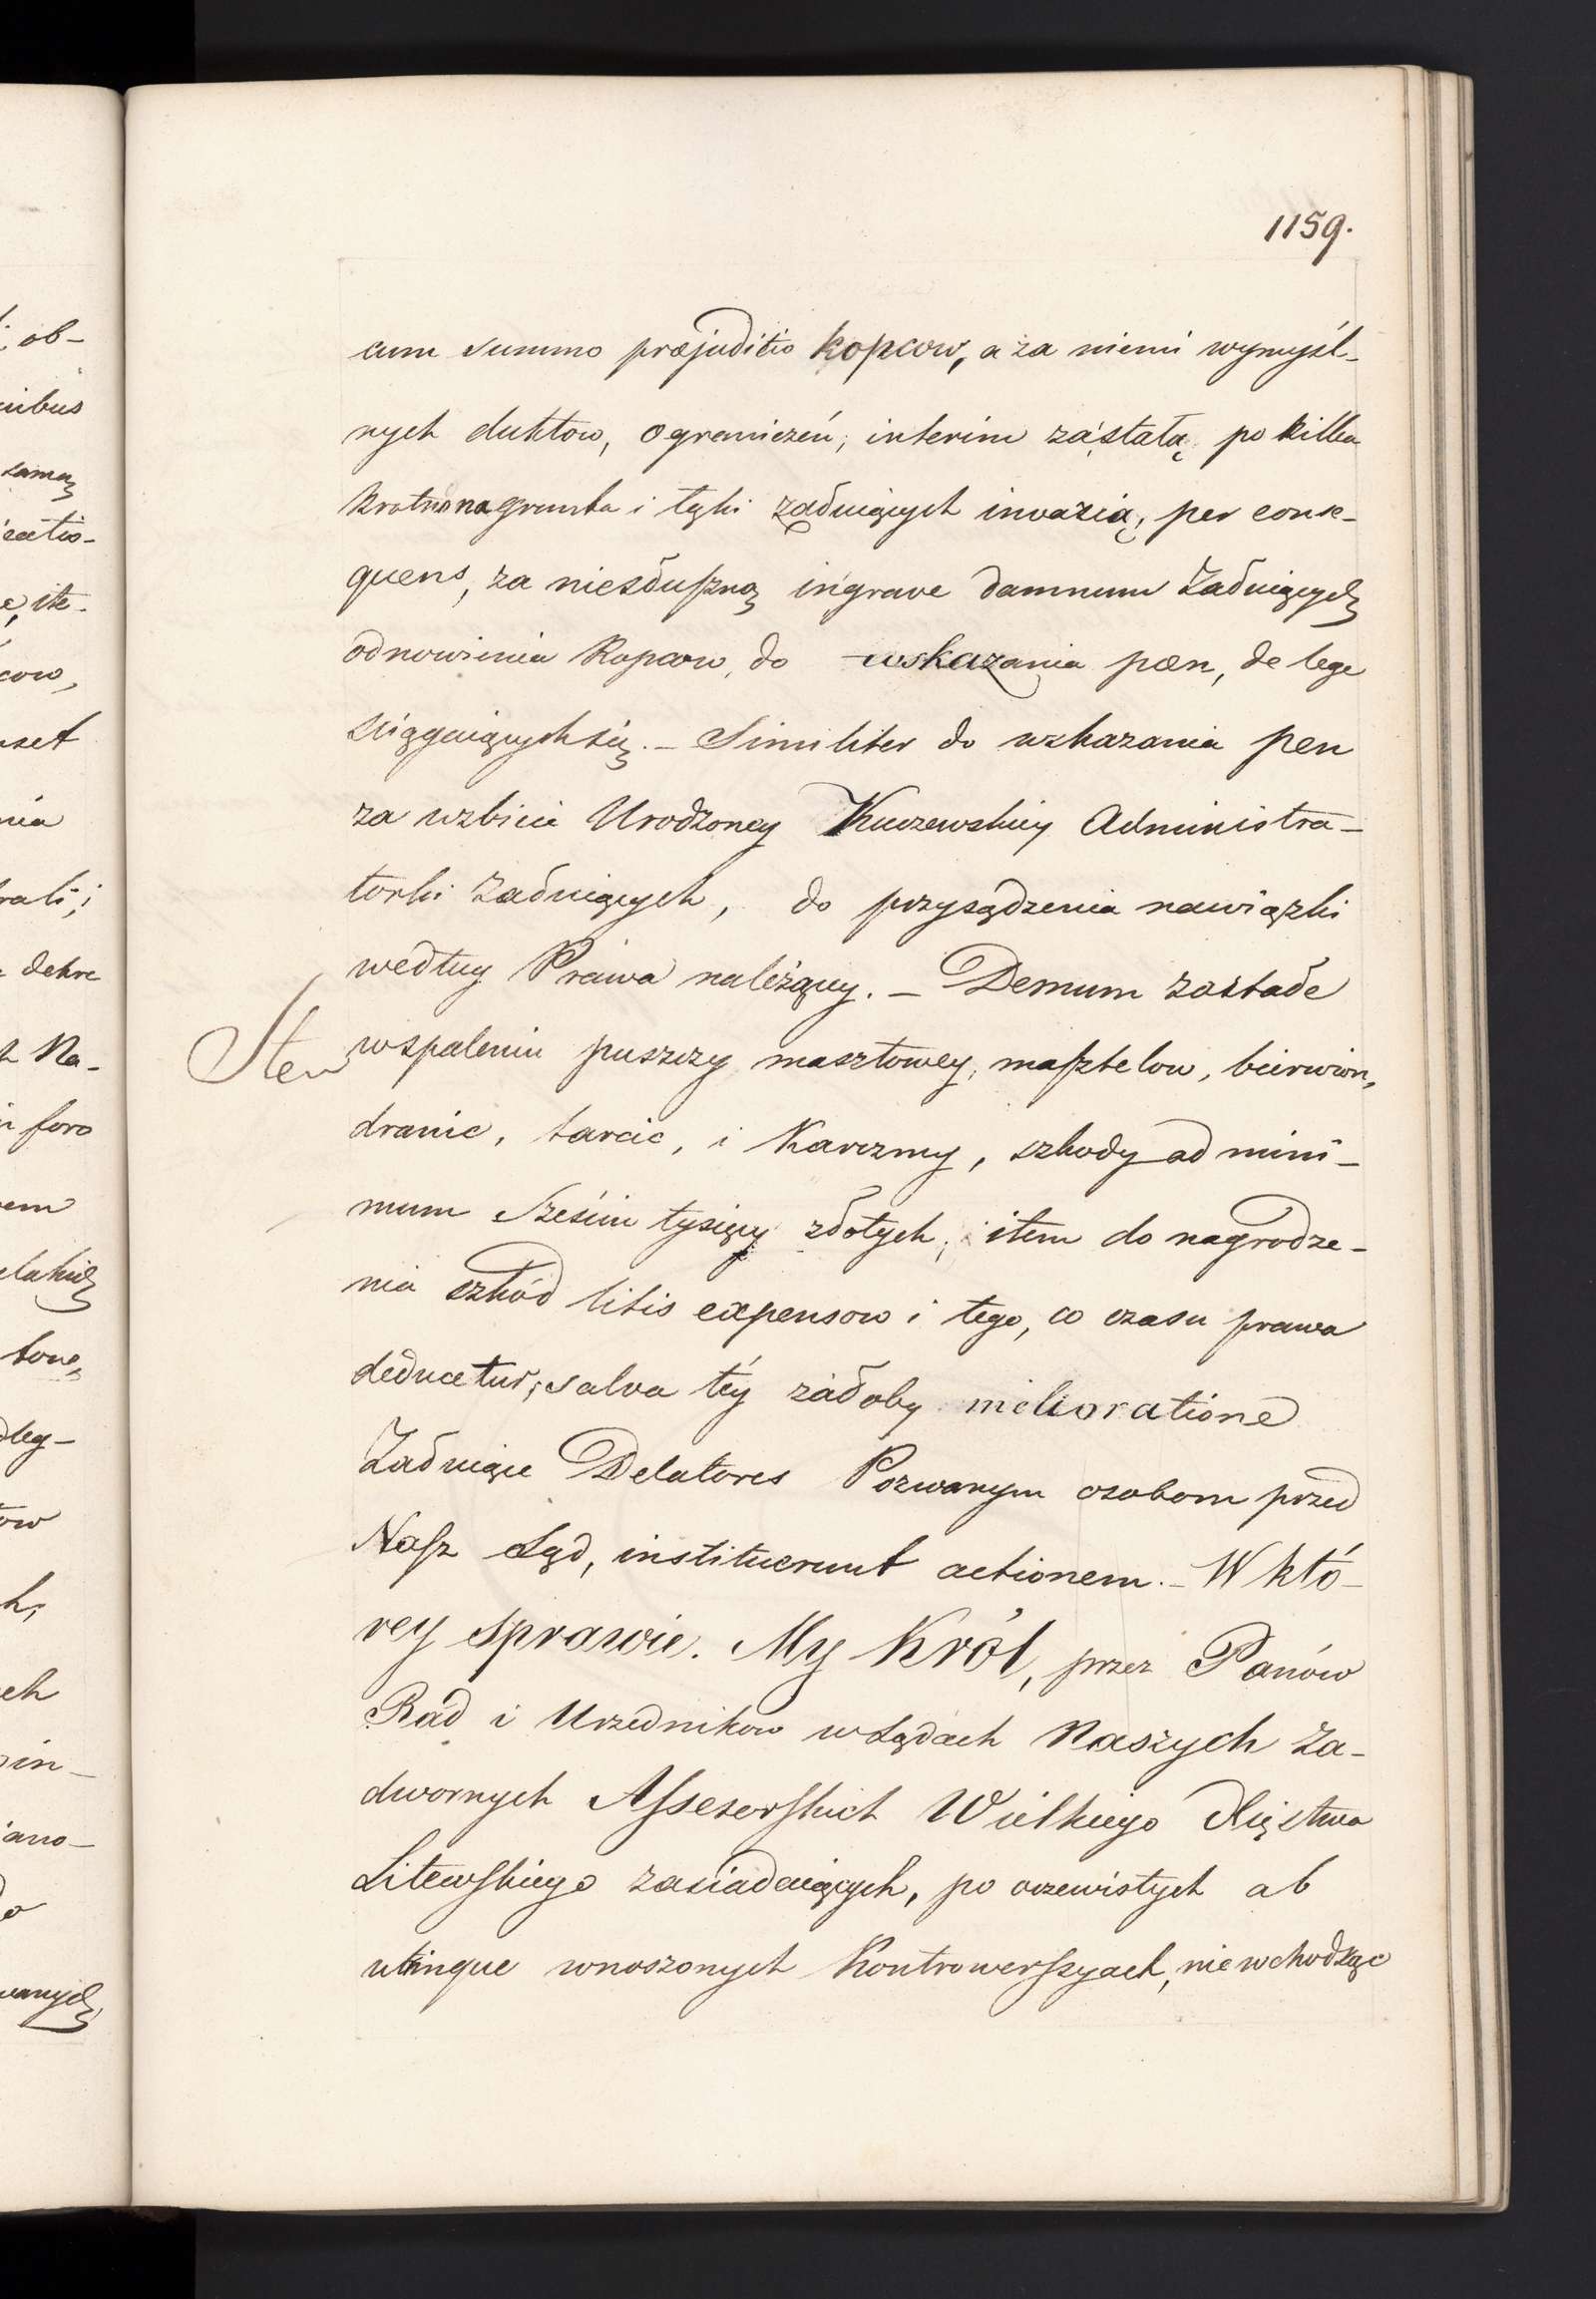 1159.
cum summo præjuditio kopcow, a za niemi wymyśl-
nych duktow, ograniczeń, interim zastałą po kilka
krotną na grunta i łąki żałuiących invazią, per conse-
quens, za niesłuszną in grave damnum Żałuiących
odnowienia Kopcow, do wskazania pæn, de lege
ściągaiących się. - Similiter do wskazania pen
za wzbicie Urodzoney Kuczewskiey Administra-
torki żałuiących, do przysądzenia nawiązki
według Prawa należącey. - Demum zostałe
w spaleniu puszczy masztowey, masztelow, bierwion,
dranic, tarcic, i Karczmy, szkody ad mini-
mum sześciu tysięcy złotych, item do nagrodze-
nia szkód litis expensow i tego, co czasu prawa
deducetur, salva téy żałoby melioratione
Żałuiące Delatores Pozwanym osobom przed
Nasz Sąd, instituerunt actionem. - W któ-
rey sprawie. My Król, przez Panów
Rad i Urzednikow w Sądach Naszych Za-
dwornych Assesorskich Wielkiego Xięstwa
Litewskiego zasiadaiących, po oczewistych ab
utrinque wnoszonych Kontrowerszyach, nie wchodząc
; ob-
nibus
samą
, ite-
cow,
nia
dekre
Na-
foro
dleg-
ow
in-